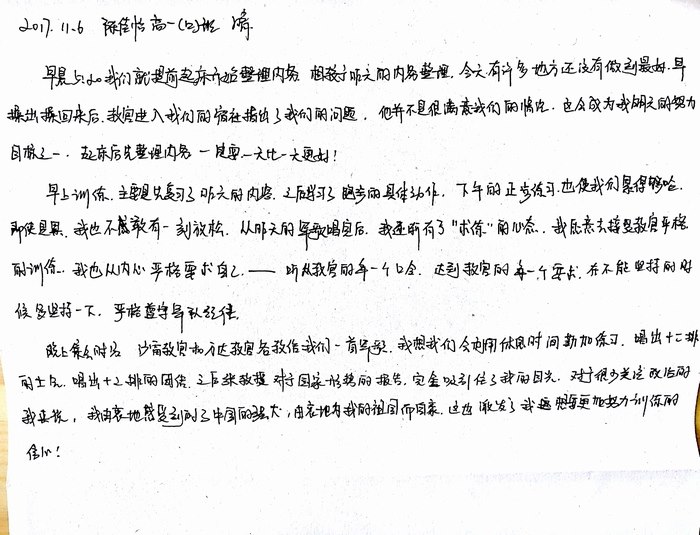 2017.11.6 陈佳怡 高一(2)班
早晨5:20我们就提前起床开始整理内务 相较于昨天的内务整理,今天有许多地方还没有做到最好.早
操出操回来后,教官进入我们的宿舍指出了我们的问题,他并不是很满意我们的情况,这会成为我明天的努力
目标之一,起床后先整理内务 一定要一天比一天更好!
早上训练,主要是先复习了昨天的内容,之后学习了跑步的具体动作,下午的正步练习也使我们累得够呛,
即使是累,我也不敢有一刻放松,从昨天的军歌唱完后,我逐渐有了"求练"的心态,我愿意去接受教官严格
的训练,我也从内心严格要求自己——听从教官的每一个口令,达到教官的每一个要求,在不能坚持的时
候多坚持一下,严格遵守军队纪律.
晚上集会时分 沙富教官和方达教官各教给我们一首军歌,我想我们会利用休息时间勤加练习,唱出十二排
的士气,唱出十二排的团结,之后张教授对于国家形势的报告,完全吸引住了我的目光,对于很少关注政治的
我来说,我由衷地感受到了中国的强大,由衷地为我的祖国而自豪,这也激发了我想要更加努力训练的
信心!